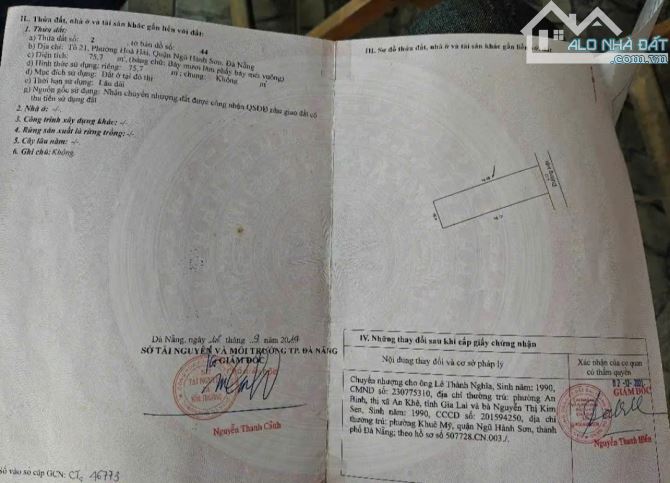 II. Thửa đất, nhà ở và tài sản khác gắn liền với đất:
1. Thửa đất:
a) Thửa đất số: 2 , tờ bản đồ số: 44
b) Địa chỉ: Tổ 21, Phường Hoà Hải, Quận Ngũ Hành Sơn, Đà Nẵng
c) Diện tích: 75,7 m², (bằng chữ: Bảy mươi lăm phẩy bảy mét vuông)
d) Hình thức sử dụng: riêng: 75,7 m²; chung: Không m²
đ) Mục đích sử dụng: Đất ở tại đô thị
e) Thời hạn sử dụng: Lâu dài
g) Nguồn gốc sử dụng: Nhận chuyển nhượng đất được công nhận QSDĐ như giao đất có
thu tiền sử dụng đất
2. Nhà ở: -/-
3. Công trình xây dựng khác: -/-
4. Rừng sản xuất là rừng trồng: -/-
5. Cây lâu năm: -/-
6. Ghi chú: Không.
Đà Nẵng, ngày tháng 9 năm
SỞ TÀI NGUYÊN VÀ MÔI TRƯỜNG TP. ĐÀ NẴNG
GIÁM ĐỐC
Nguyễn Thanh Cảnh
Số vào sổ cấp GCN: CTs 46773
ALO NHÀ ĐẤT
III. Sơ đồ thửa đất, nhà ở và tài sản khác gắn liền với đất
IV. Những thay đổi sau khi cấp giấy chứng nhận
Nội dung thay đổi và cơ sở pháp lý
Xác nhận của cơ quan
có thẩm quyền
GIÁM ĐỐC
Chuyển nhượng cho ông Lê Thành Nghĩa, Sinh năm: 1990,
CMND số: 230775310, địa chỉ thường trú: phường An
Bình, thị xã An Khê, tỉnh Gia Lai và bà Nguyễn Thị Kim
Sen, Sinh năm: 1990, CCCD số: 201594250, địa chỉ
thường trú: phường Khuê Mỹ, quận Ngũ Hành Sơn, thành
phố Đà Nẵng; theo hồ sơ số 507728.CN.003./.
Nguyễn Thanh Hiền